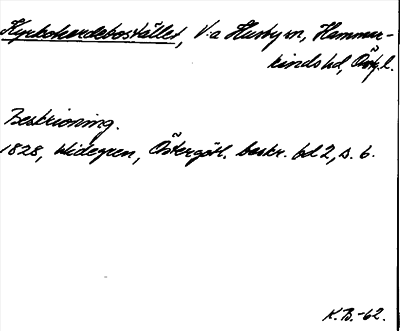 Kyrkoherdebostället, V:a Husby sn, Hammer-
kinds hd, Östg.l.
Beskrivning.
1828, Widegren, Östergötl. beskr. bd 2, s. 6.
K.B.-62.